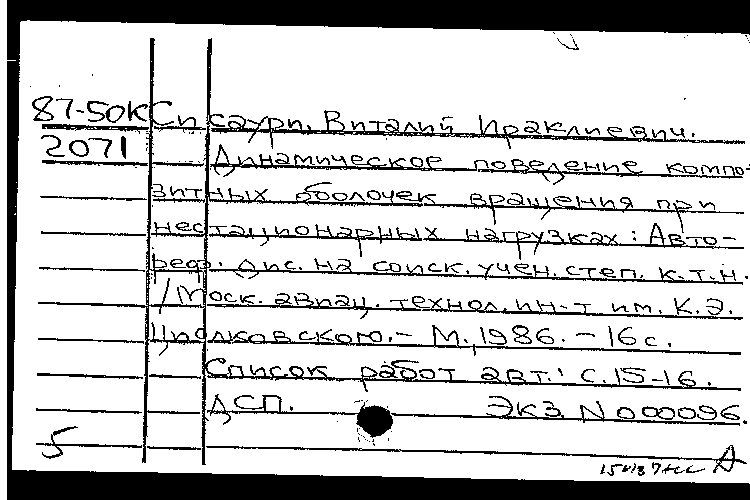 87-50К Сисаури, Виталий Ираклиевич.
2071 Динамическое поведение компо-
зитных оболочек вращения при
нестационарных нагрузках: Авто-
реф. дис. на соиск. учен. степ. к.т.н.
/Моск. авиац. технол. ин-т им. К.Э.
Циолковского.- М., 1986. - 16 с.
Список работ авт.: с. 15-16.
ДСП. Экз. N 000096.
5
А